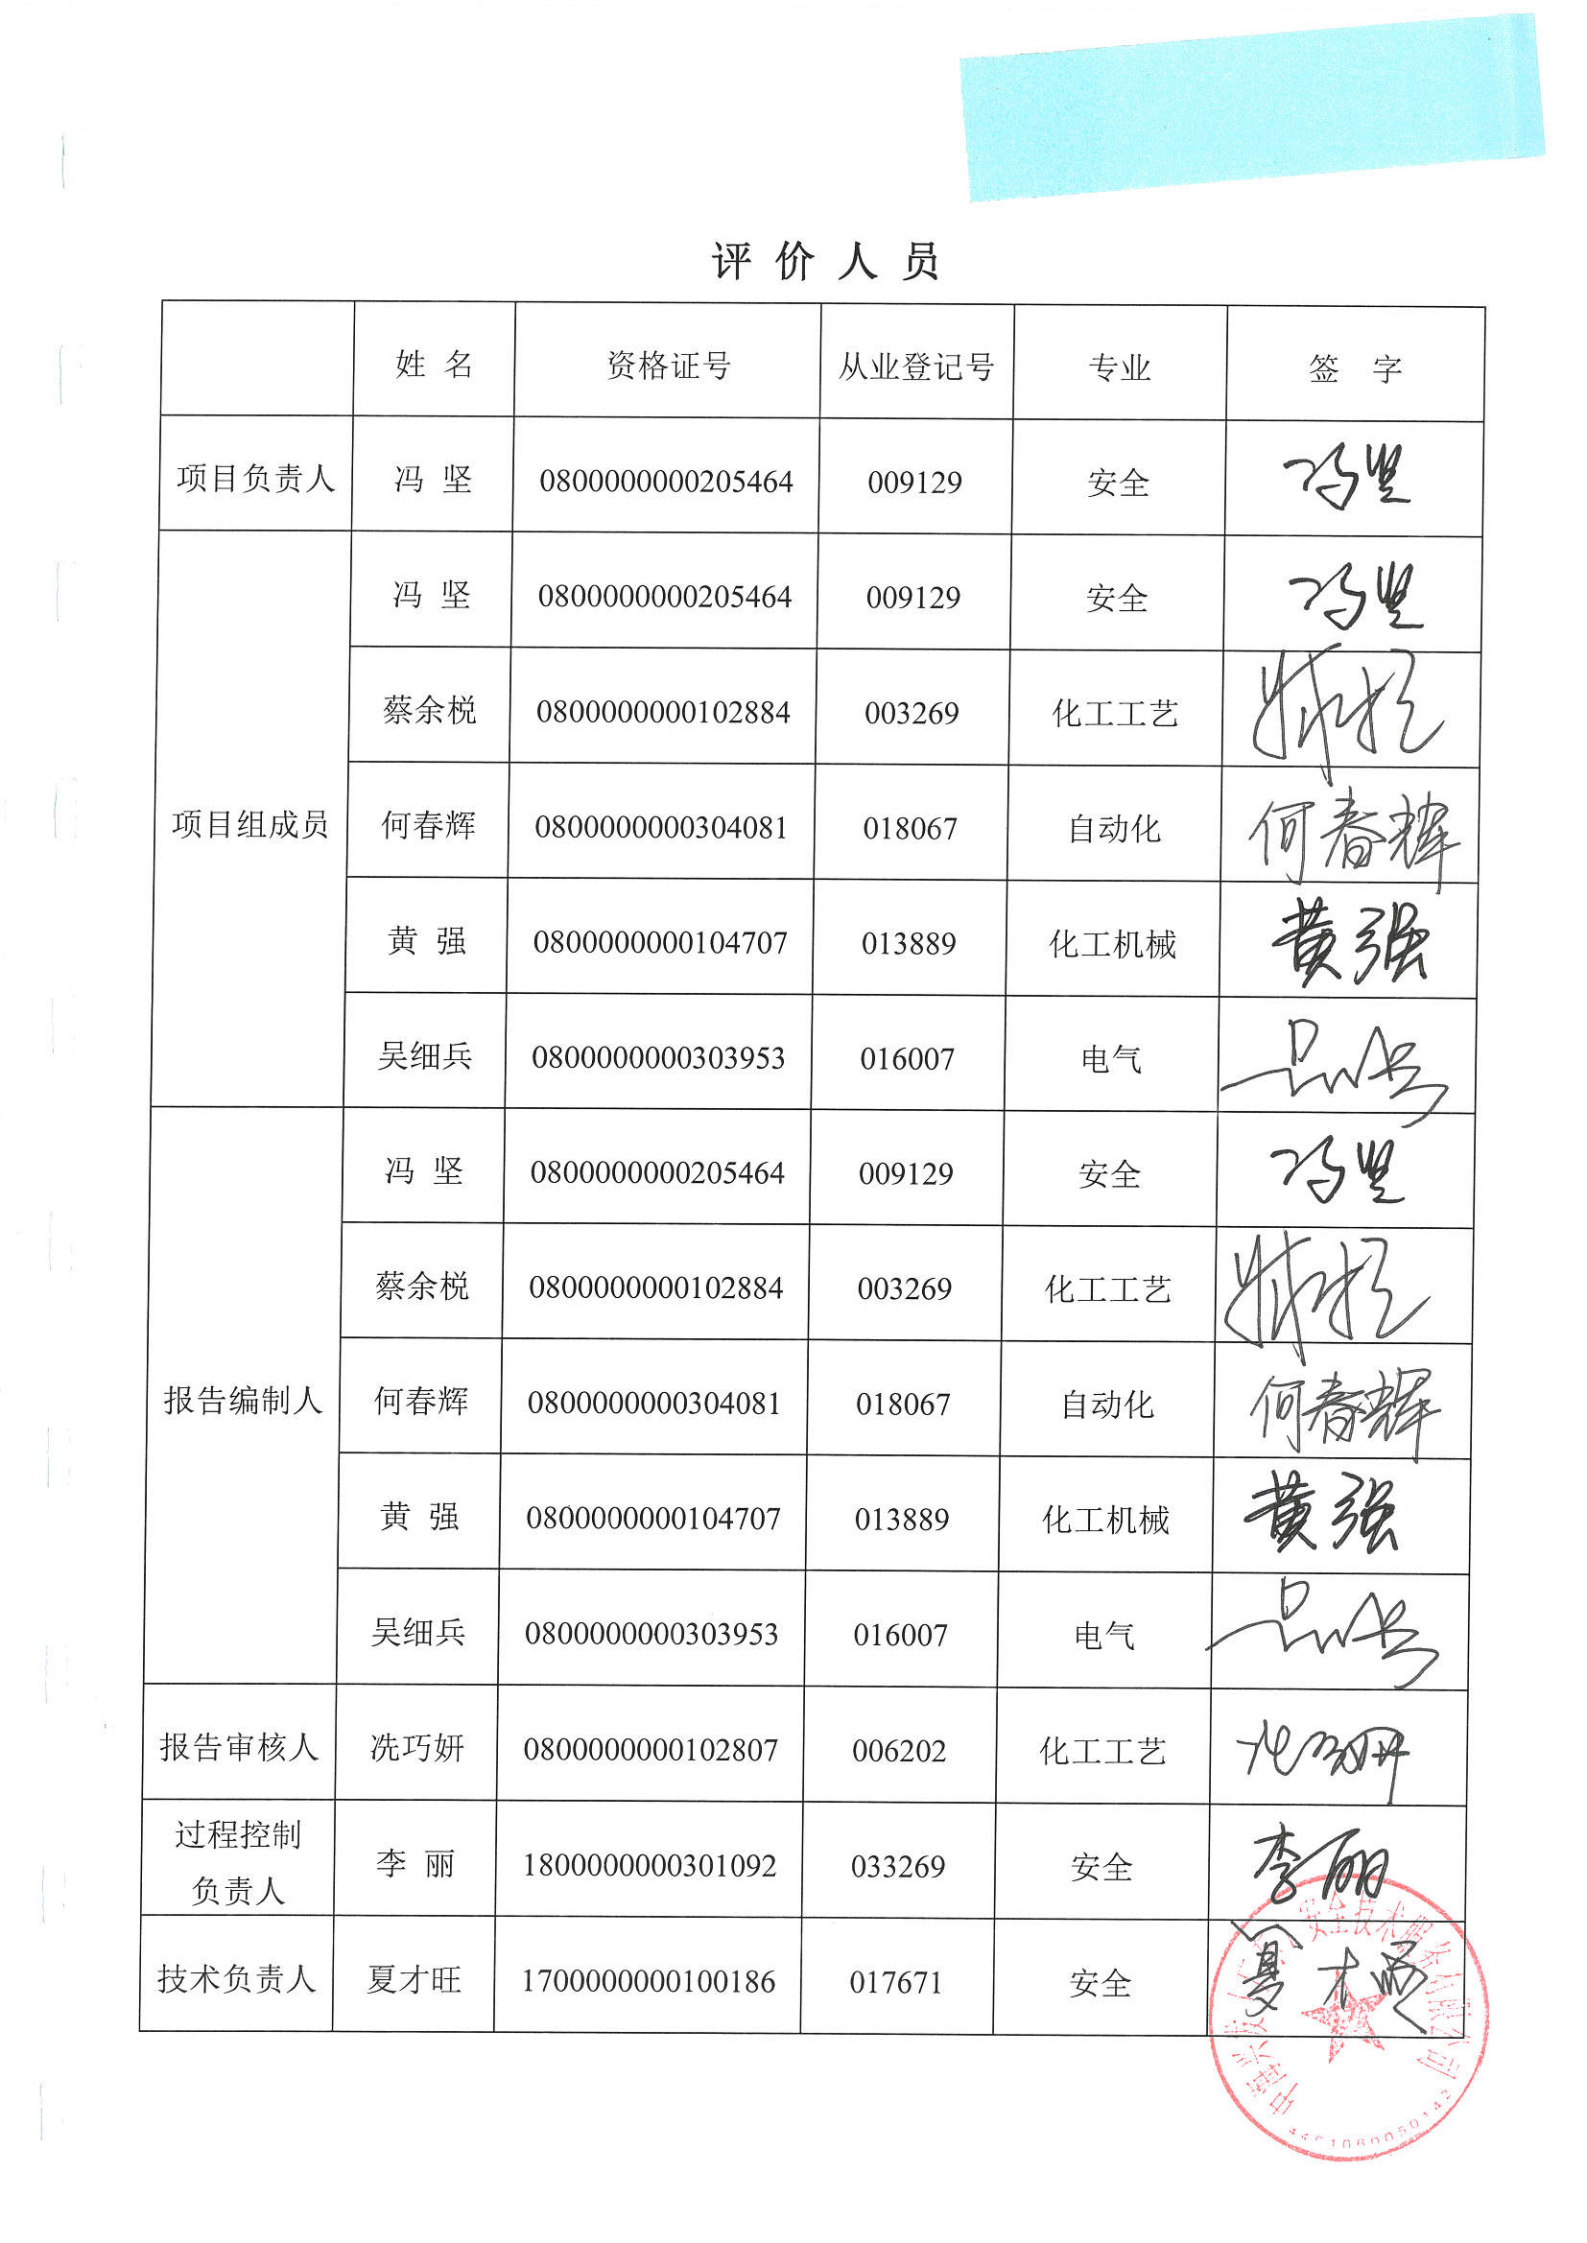 评价人员
姓 名 资格证号 从业登记号 专业 签 字
项目负责人 冯 坚 0800000000205464 009129 安全 冯坚
项目组成员 冯 坚 0800000000205464 009129 安全 冯坚
蔡余棁 0800000000102884 003269 化工工艺
何春辉 0800000000304081 018067 自动化 何春辉
黄 强 0800000000104707 013889 化工机械 黄强
吴细兵 0800000000303953 016007 电气
报告编制人 冯 坚 0800000000205464 009129 安全 冯坚
蔡余棁 0800000000102884 003269 化工工艺
何春辉 0800000000304081 018067 自动化 何春辉
黄 强 0800000000104707 013889 化工机械 黄强
吴细兵 0800000000303953 016007 电气
报告审核人 冼巧妍 0800000000102807 006202 化工工艺
过程控制
负责人 李 丽 1800000000301092 033269 安全 李丽
技术负责人 夏才旺 1700000000100186 017671 安全 夏才旺
安全技术服务有限公司